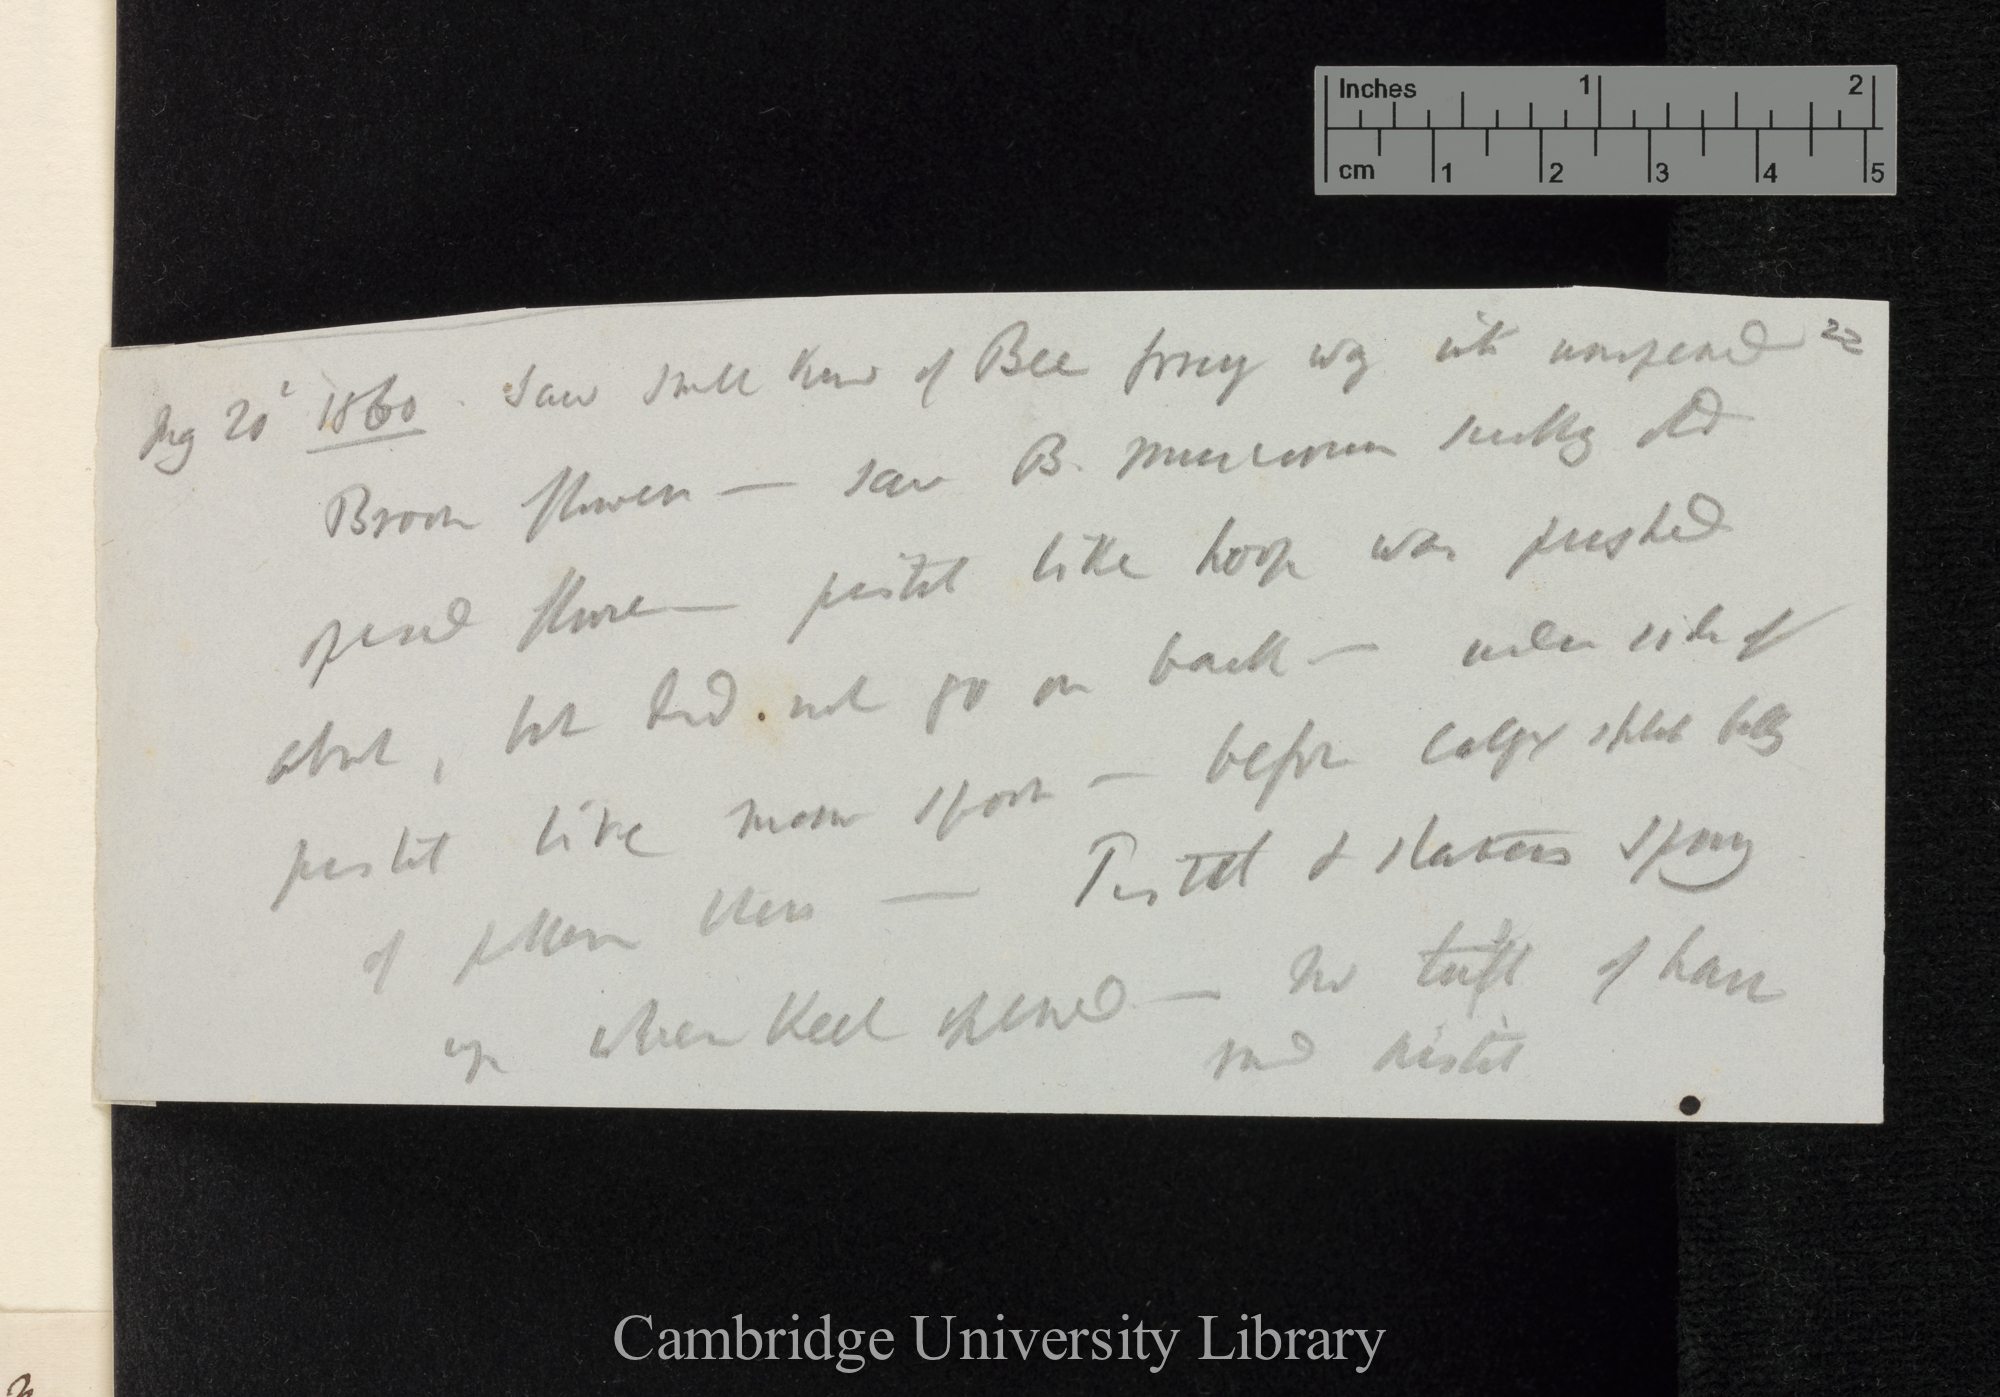 Inches 1 2
cm 1 2 3 4 5
22
Aug 20' 1860. Saw small kind of Bee forcing way into unopened
Broom flowers — saw B. muscorum sucking old
opened flower — pistil like hoop was pushed
about, but did not go on back — under side of
pistil like spoon — before calyx
of pollen — Pistil & stamens spring
up when keel opened — No tuft of hairs
round pistil
Cambridge University Library